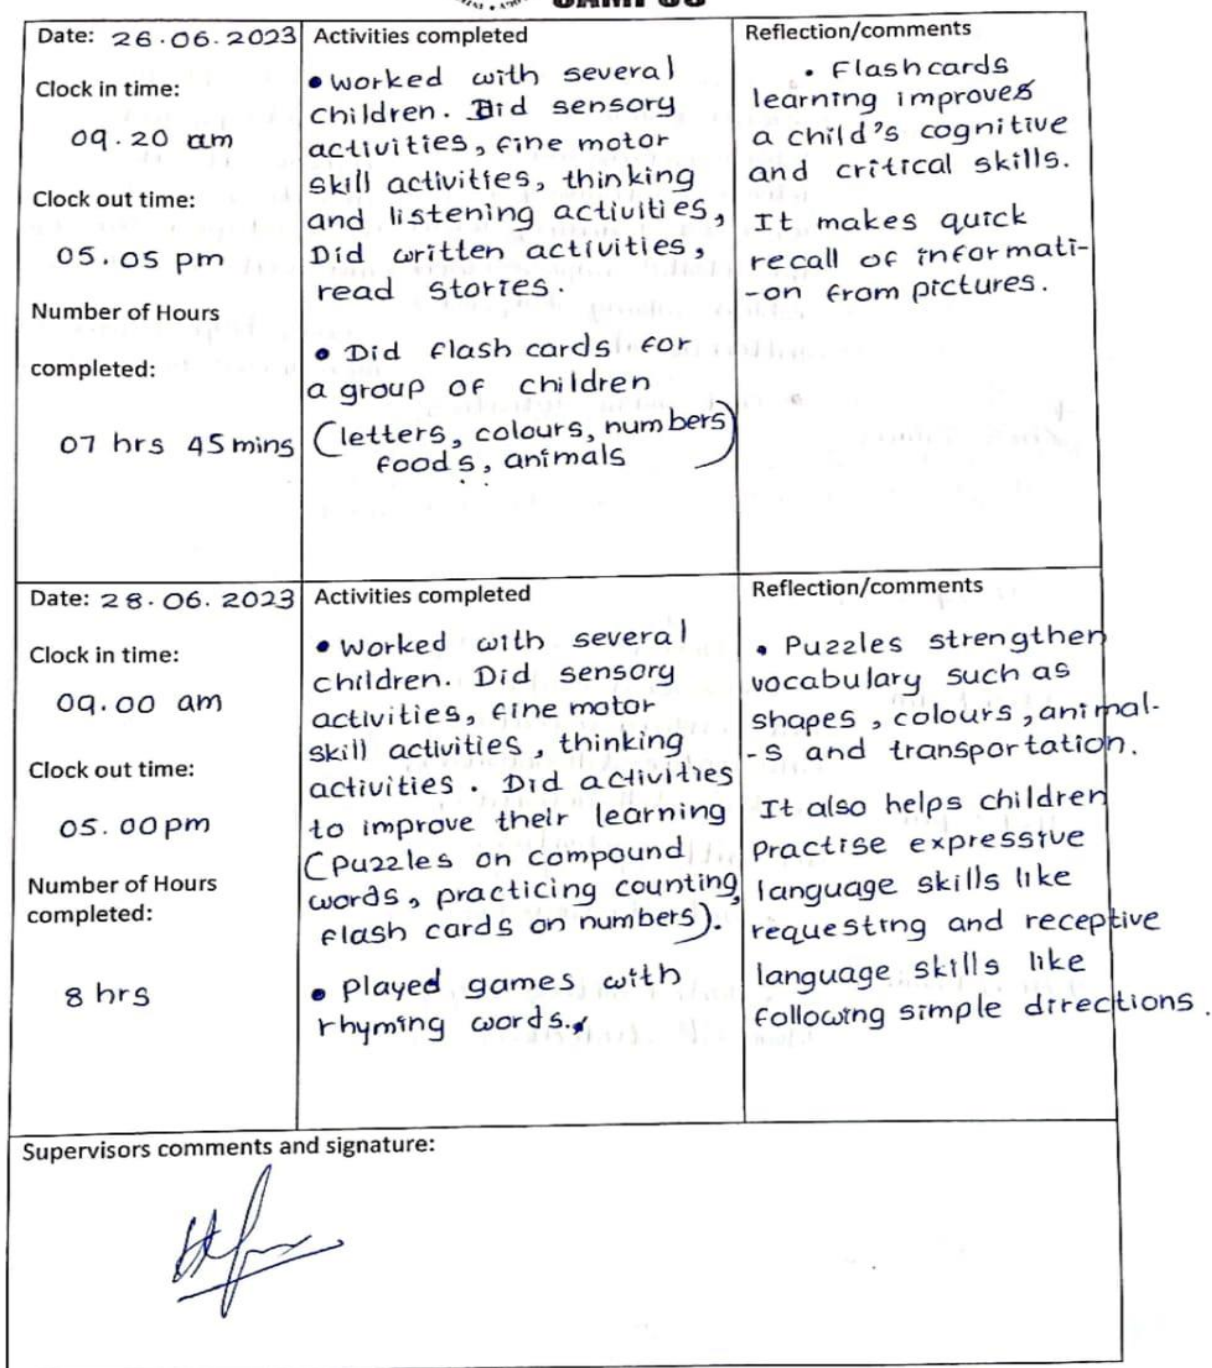 CAMPUS
Date: 26.06.2023
Clock in time:
09.20 am
Clock out time:
05.05 pm
Number of Hours
completed:
07 hrs 45 mins
Activities completed
• Worked with several
children. Did sensory
activities, fine motor
skill activities, thinking
and listening activities,
Did written activities,
read stories.
• Did flash cards for
a group of children
(letters, colours, numbers)
foods, animals
Reflection/comments
• Flash cards
learning improves
a child's cognitive
and critical skills.
It makes quick
recall of informati-
-on from pictures.
Date: 28.06.2023
Clock in time:
09.00 am
Clock out time:
05.00 pm
Number of Hours
completed:
8 hrs
Activities completed
• Worked with several
children. Did sensory
activities, fine motor
skill activities, thinking
activities. Did activities
to improve their learning
(puzzles on compound
words, practicing counting,
flash cards on numbers).
• Played games with
rhyming words.
Reflection/comments
• Puzzles strengthen
vocabulary such as
shapes, colours, animal-
-s and transportation.
It also helps children
practise expressive
language skills like
requesting and receptive
language skills like
following simple directions.
Supervisors comments and signature: